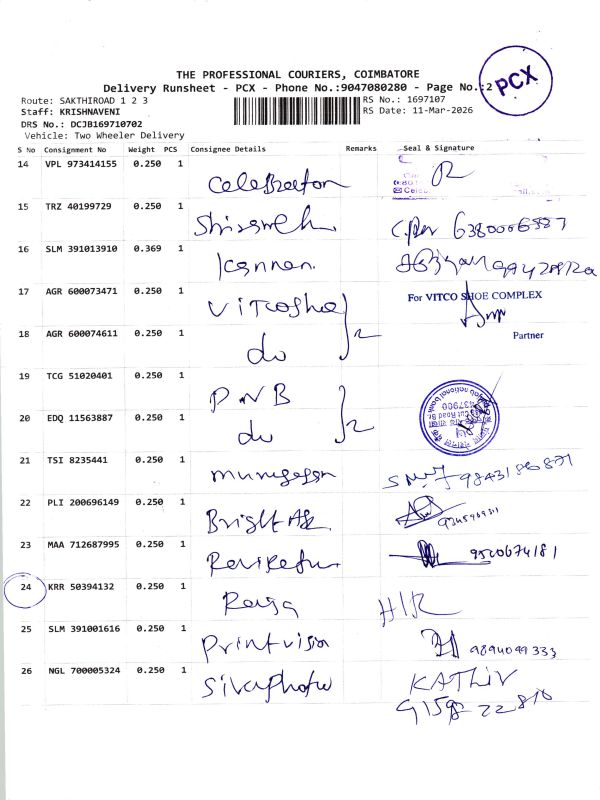 THE PROFESSIONAL COURIERS, COIMBATORE
Delivery Runsheet - PCX - Phone No.:9047080280 - Page No.:2
PCX
Route: SAKTHIROAD 1 2 3
RS No.: 1697107
Staff: KRISHNAVENI
RS Date: 11-Mar-2026
DRS No.: DCJB169710702
Vehicle: Two Wheeler Delivery
S No Consignment No Weight PCS Consignee Details Remarks Seal & Signature
14 VPL 973414155 0.250 1 Celebration
15 TRZ 40199729 0.250 1
16 SLM 391013910 0.369 1 Kannan
17 AGR 600073471 0.250 1 Vitcosho
For VITCO SHOE COMPLEX
18 AGR 600074611 0.250 1 do 2
Partner
19 TCG 51020401 0.250 1 PNB
20 EDQ 11563887 0.250 1 do 2
21 TSI 8235441 0.250 1 murugesan
22 PLI 200696149 0.250 1 Bright
23 MAA 712687995 0.250 1 9520674181
24 KRR 50394132 0.250 1 H/R
25 SLM 391001616 0.250 1 Printvision 9894099333
26 NGL 700005324 0.250 1 Sivaphoto KATHIV